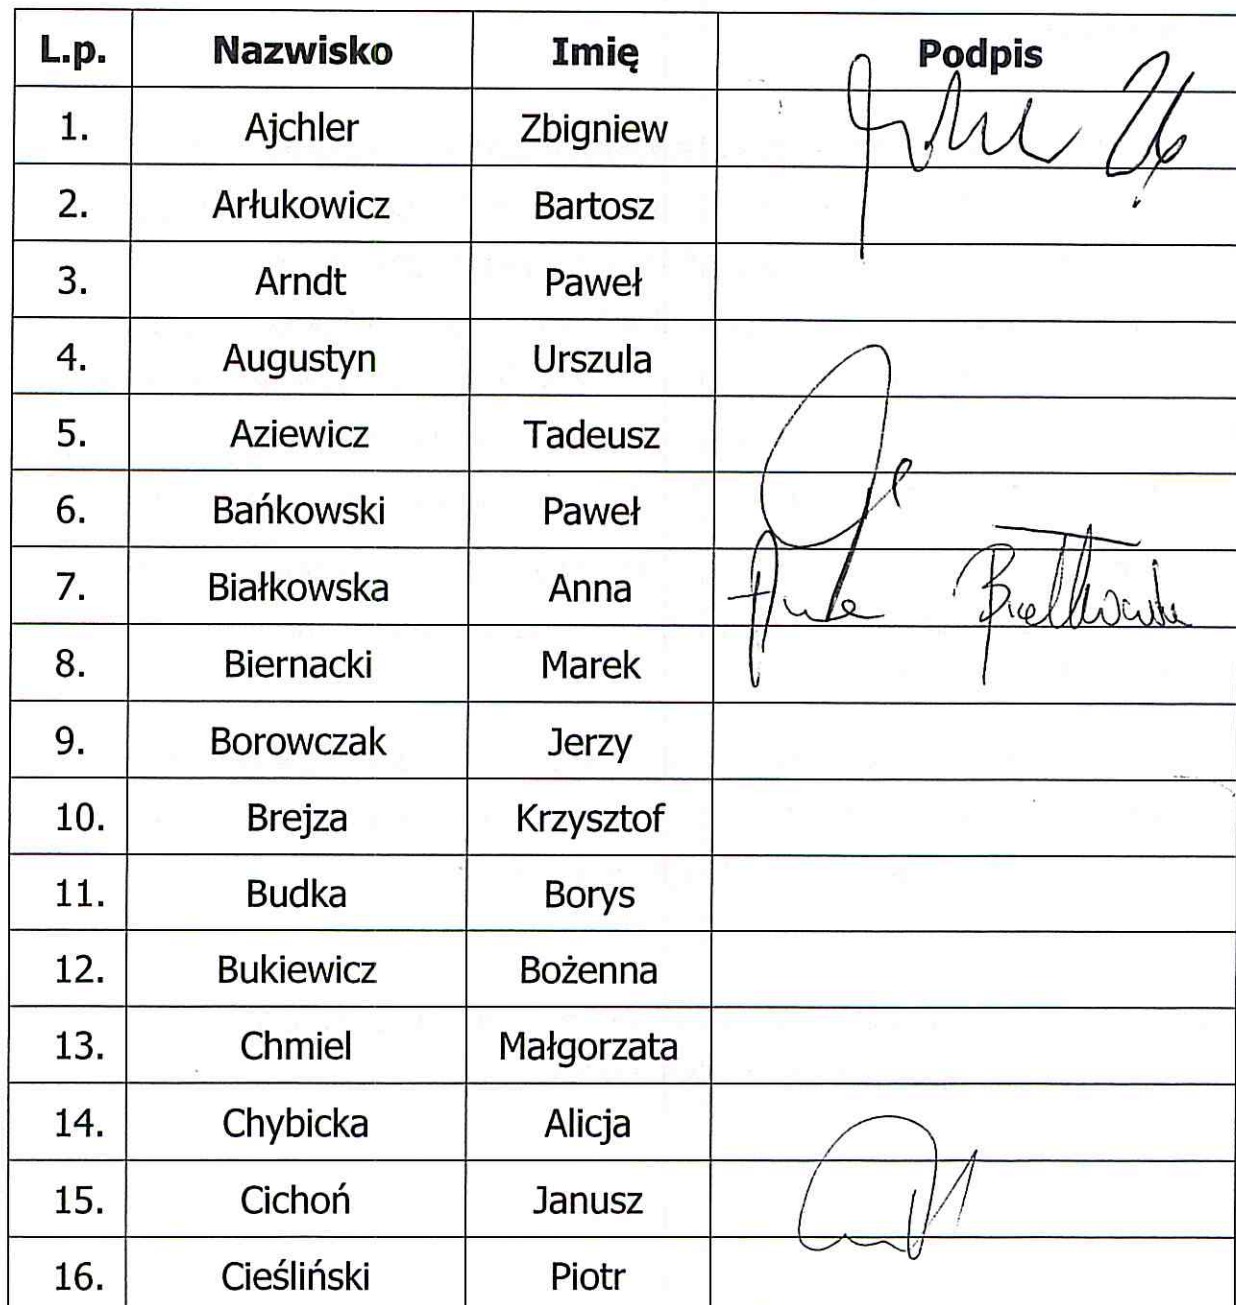 L.p. Nazwisko Imię Podpis
1. Ajchler Zbigniew
2. Arłukowicz Bartosz
3. Arndt Paweł
4. Augustyn Urszula
5. Aziewicz Tadeusz
6. Bańkowski Paweł
7. Białkowska Anna Anna Białkowska
8. Biernacki Marek
9. Borowczak Jerzy
10. Brejza Krzysztof
11. Budka Borys
12. Bukiewicz Bożenna
13. Chmiel Małgorzata
14. Chybicka Alicja
15. Cichoń Janusz
16. Cieśliński Piotr